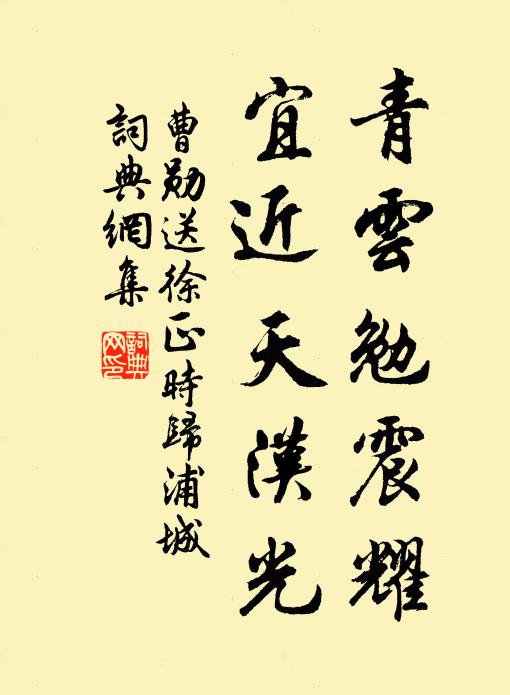 青雲勉震耀
宜近天漢光
曹勛送徐正時歸浦城
詞典網集
詞典網印